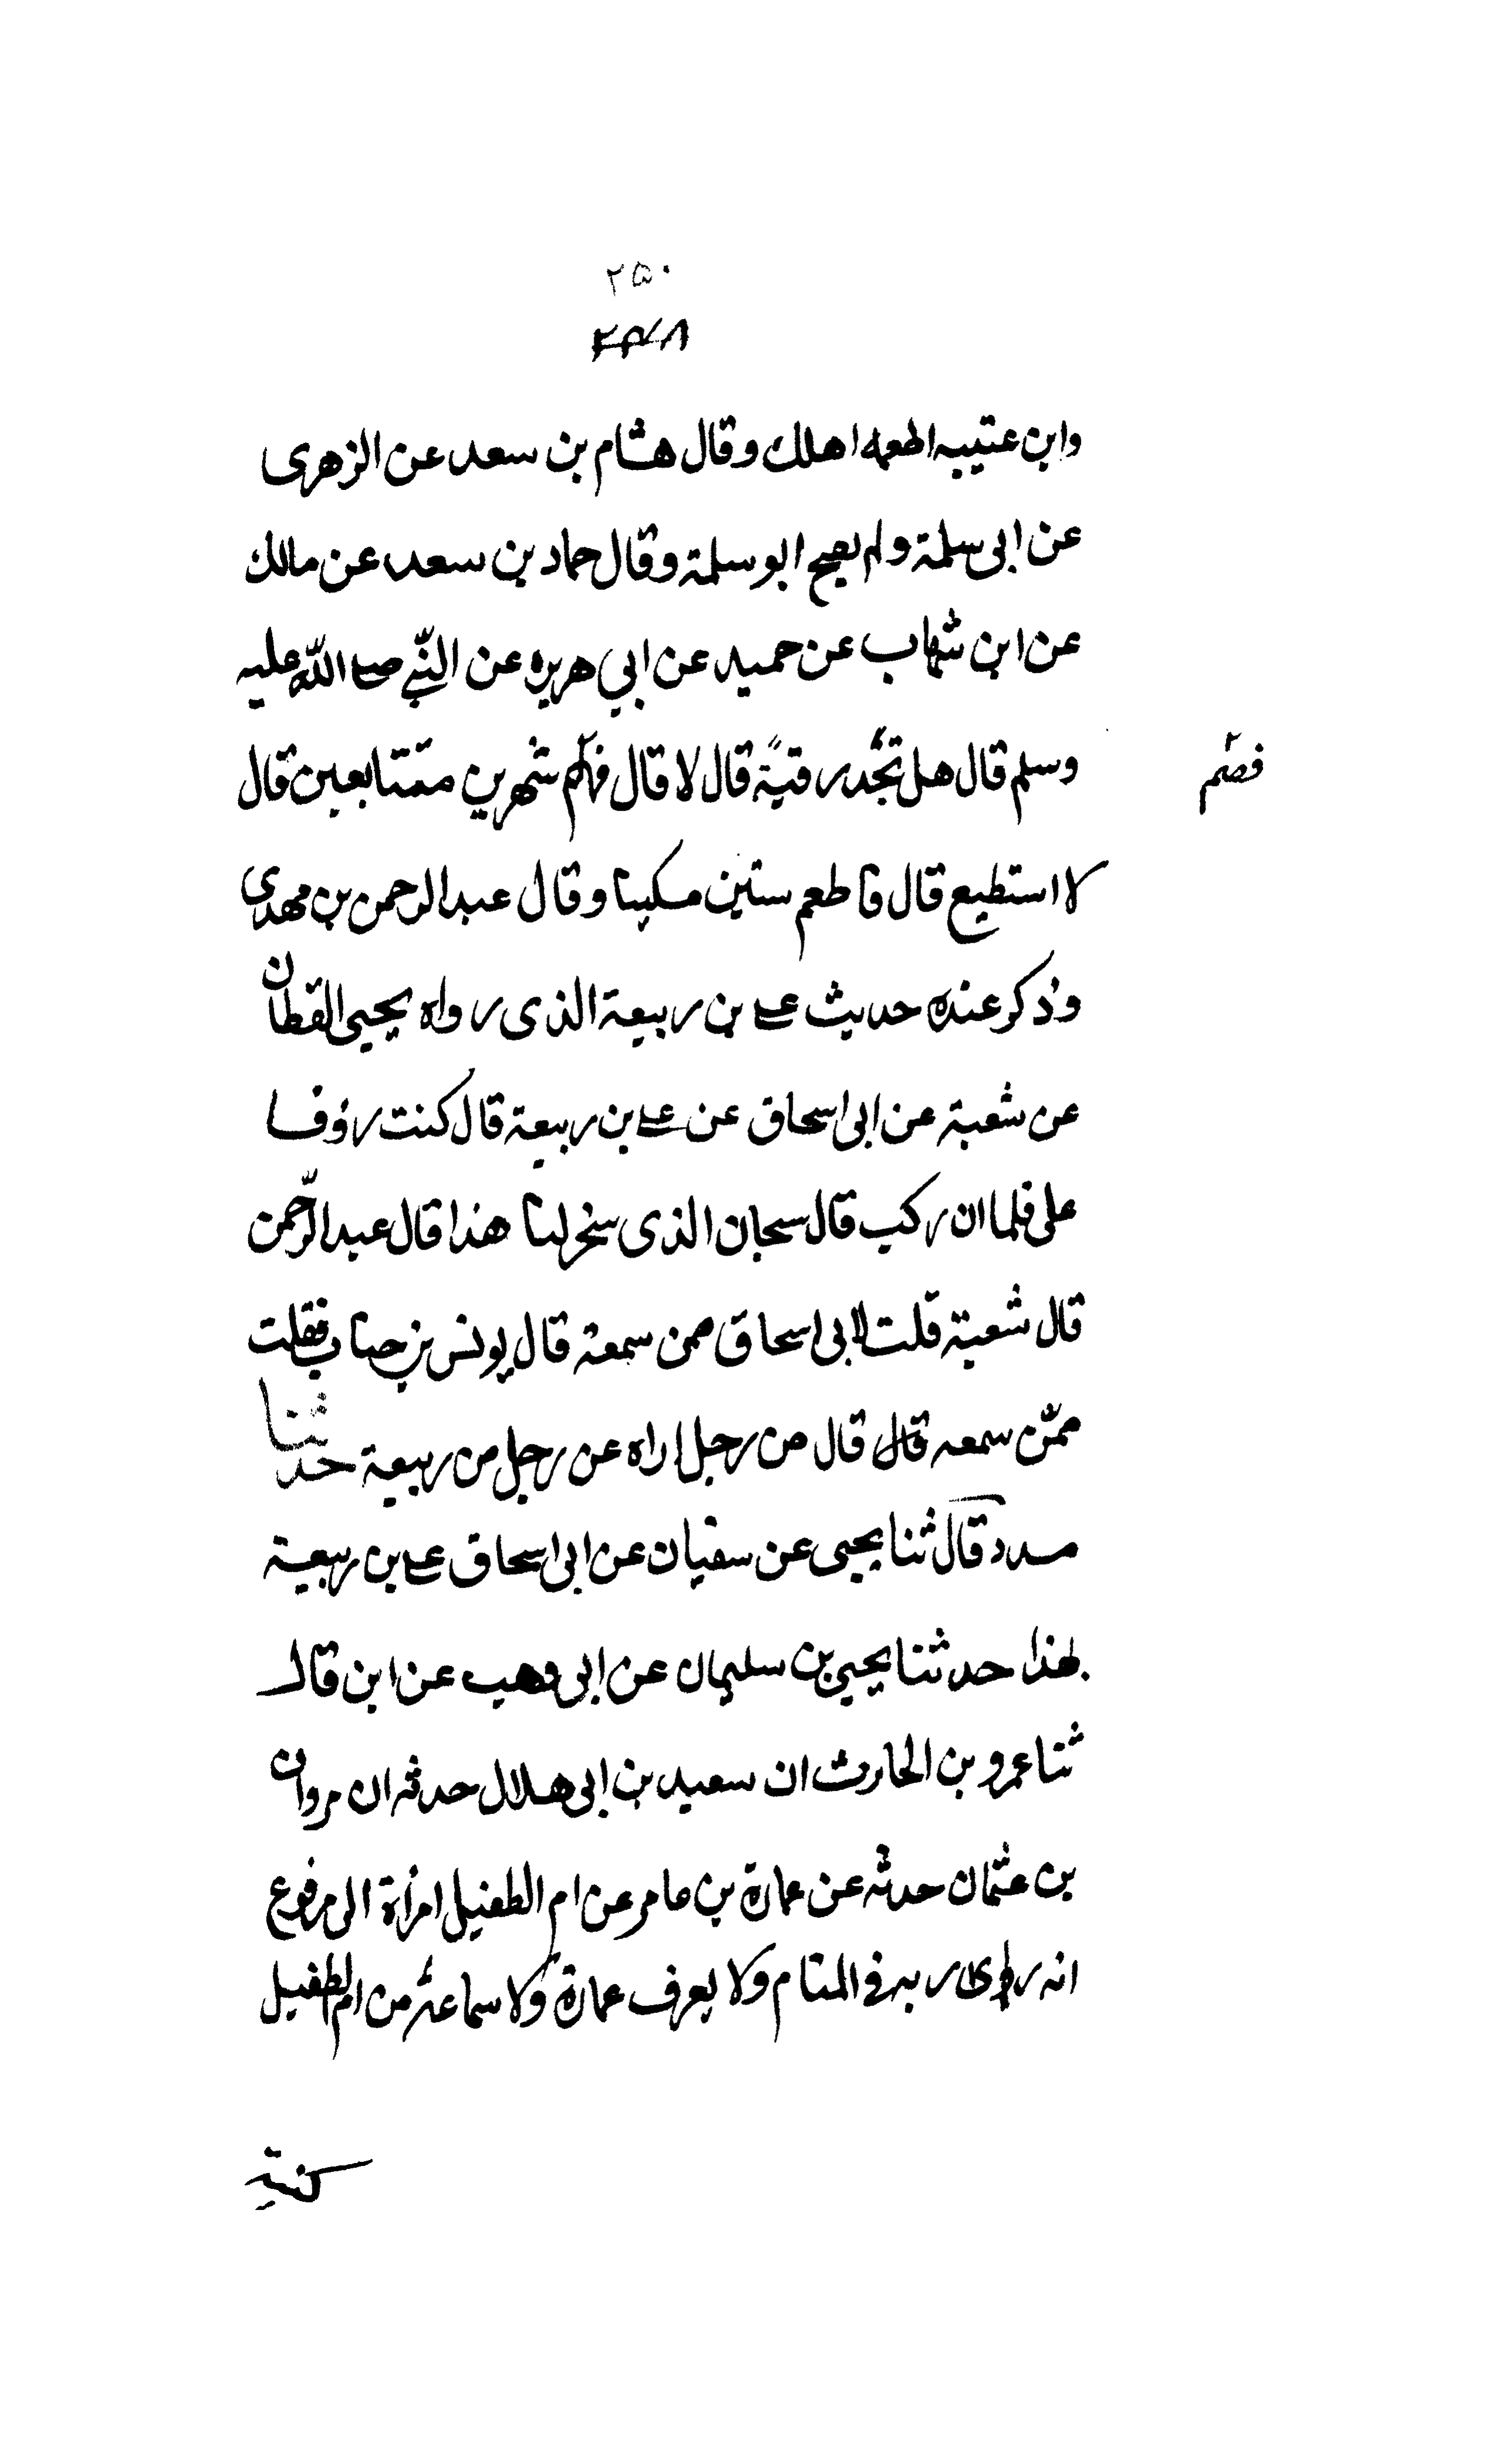 ٢٥٠
٢٣٨
وابن عتيبه اطعمه اهلك وقال هشام بن سعد عن الزهرى
عن ابى سلمة ولم يصح ابو سلمة وقال حماد بن سعد عن مالك
عن ابن شهاب عن حميد عن ابي هريره عن النبي صلى الله عليه
وسلم قال هل تجد رقبة قال لا قال فصم شهرين متتابعين قال
فصم
لا استطيع قال فاطعم ستين مسكينا وقال عبد الرحمن بن مهدى
وذكر عنده حديث على بن ربيعة الذى رواه يحيى القطان
عن شعبة عن ابى اسحاق عن على بن ربيعة قال كنت ردفا
على فلما ان ركب قال سبحان الذى سخر لنا هذا قال عبد الرّحمن
قال شعبة قلت لابى اسحاق ممن سمعة قال يونس بن خباب فقلت
ممّن سمعه قال قال من رجل اراه عن رجل من ربيعة حدثنا
مسدد قال ثنا يحيى عن سفيان عن ابى اسحاق على بن ربيعة
بهذا حدثنا يحيى بن سليمان عن ابى وهب عن ابن قال
ثنا عمرو بن الحارث ان سعيد بن ابى هلال حدثه ان مروان
بن عثمان حدثه عن عمارة بن عامر عن ام الطفيل امرأة ابى مرفوع
انه راى ربه فى المنام ولا يعرف عمارة ولا سماعه من ام الطفيل